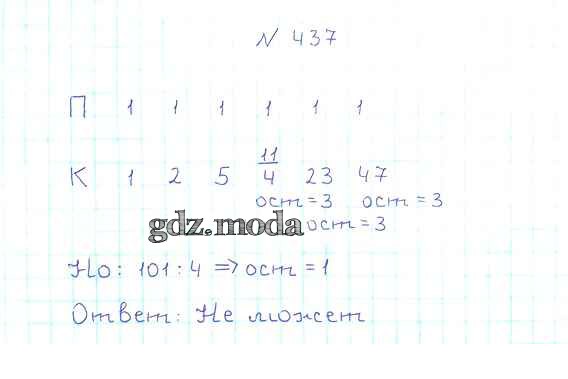 № 437
П 1 1 1 1 1 1
К 1 2 5 11/4 23 47
ост = 3 ост = 3
gdz.moda ост = 3
Но: 101 : 4 ⇒ ост = 1
Ответ: Не может